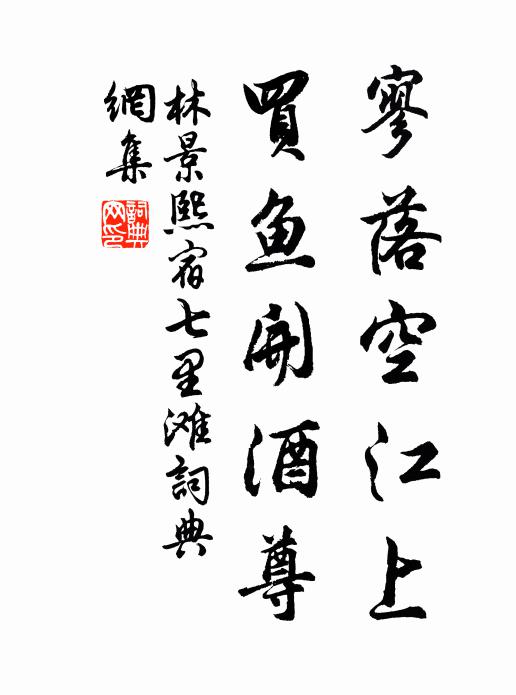 寥落空江上
買魚開酒尊
林景熙宿七里滩詞典
網集
詞典網印